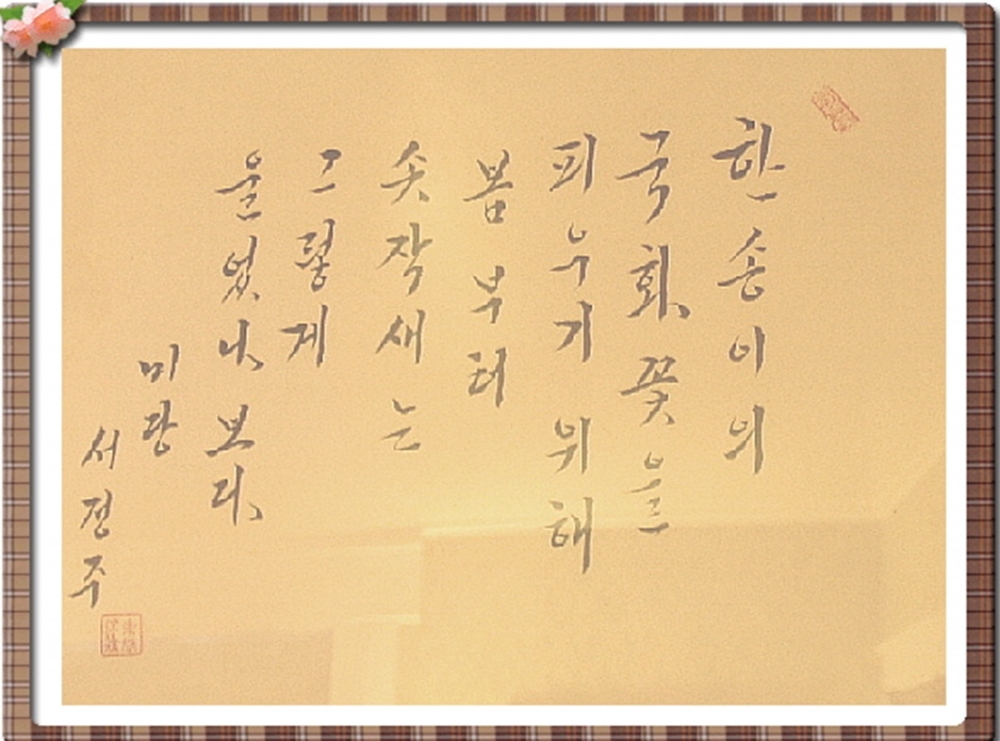 한송이의
국화꽃을
피우기 위해
봄부터
솟작새는
그렇게
울었나 보다
미당
서정주